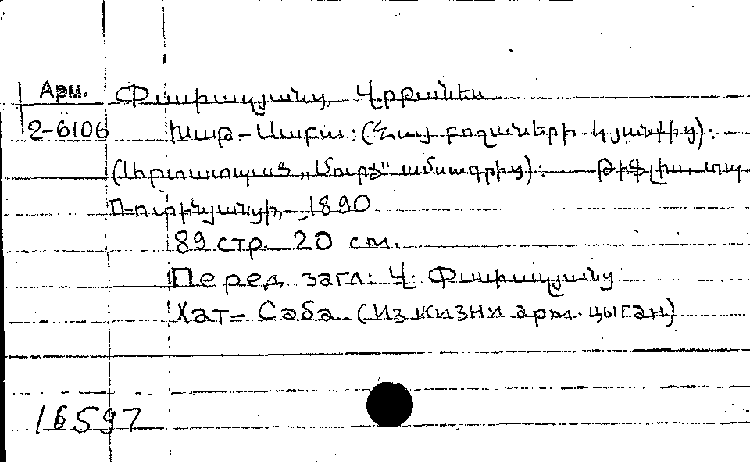 Арм. Փափազյանց, Վրթանես
2-6106 Խաթ-Սաբա: (Հայ բոշաների կյանքից):
(Արտատպած „Մուրճ“ ամսագրից): Թիֆլիս, տպ.
Ռոտինյանցի, 1890
89 стр. 20 см.
Перед загл: Վ. Փափազյանց
Хат-Саба (Из жизни арм. цыган)
16597